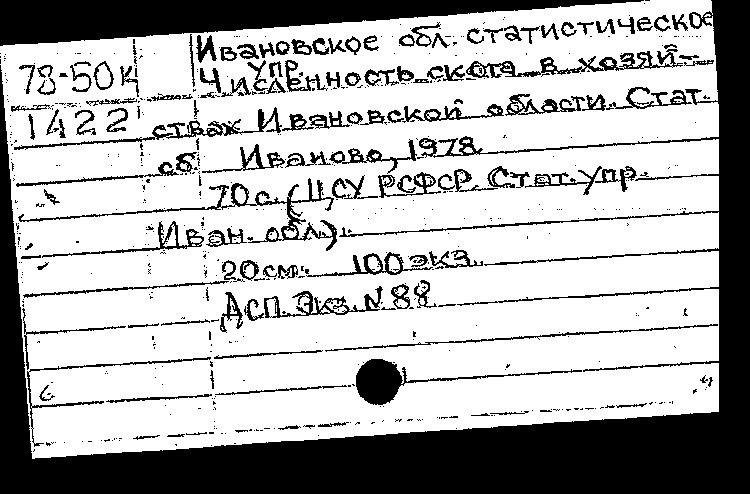 Ивановское обл. статистическое
упр.
78-50к Численность скота в хозяй-
1422 ствах Ивановской области. Стат.
сб. Иваново, 1978
70 с. (ЦСУ РСФСР. Стат. упр.
Иван. обл.).
20 см. 100 экз.
ДСП. Экз. N 88